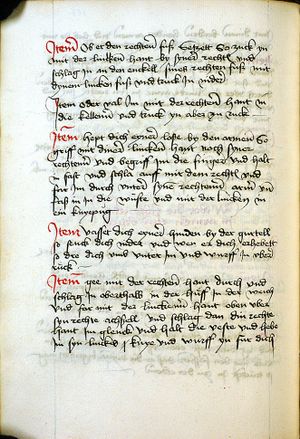 Item Ob er den rechten fuß setzett So zuck yn
mit der lincken hant by syner rechten vnd
schlag in an den enckell sines rechten fuß mit
dynem lincken fuß vnd truck in nider
Item oder val Im mit der rechten hant in
die kellen vnd truck yn aber zu ruck
Item hept dich eyner lose by den armen So
griff mit diner lincken hant nach syner
rechten vnd begriff im die finger vnd halt
in fast vnd schla auff mit dem rechten vnd
far Im durch vnter syn rechten arm vn
faß in in die
vnd mit der lincken in
ein
Item vasset dich eyner hinden by der gurtell
so senck dich nider vnd wen er dich erhebett
so dre dich vmb vnter im vnd wurff in vber
ruck
Item gee mit der rechten hant durch vnd
schlag in oberthalb in der huff in der weich
vnd far mit der linckenn hant oben vber
syn rechte achsell vnd schlag dan din rechte
hant im glenck vnd halt die veste vnd hebe
in syn lincke vnd wurff yn fur dich